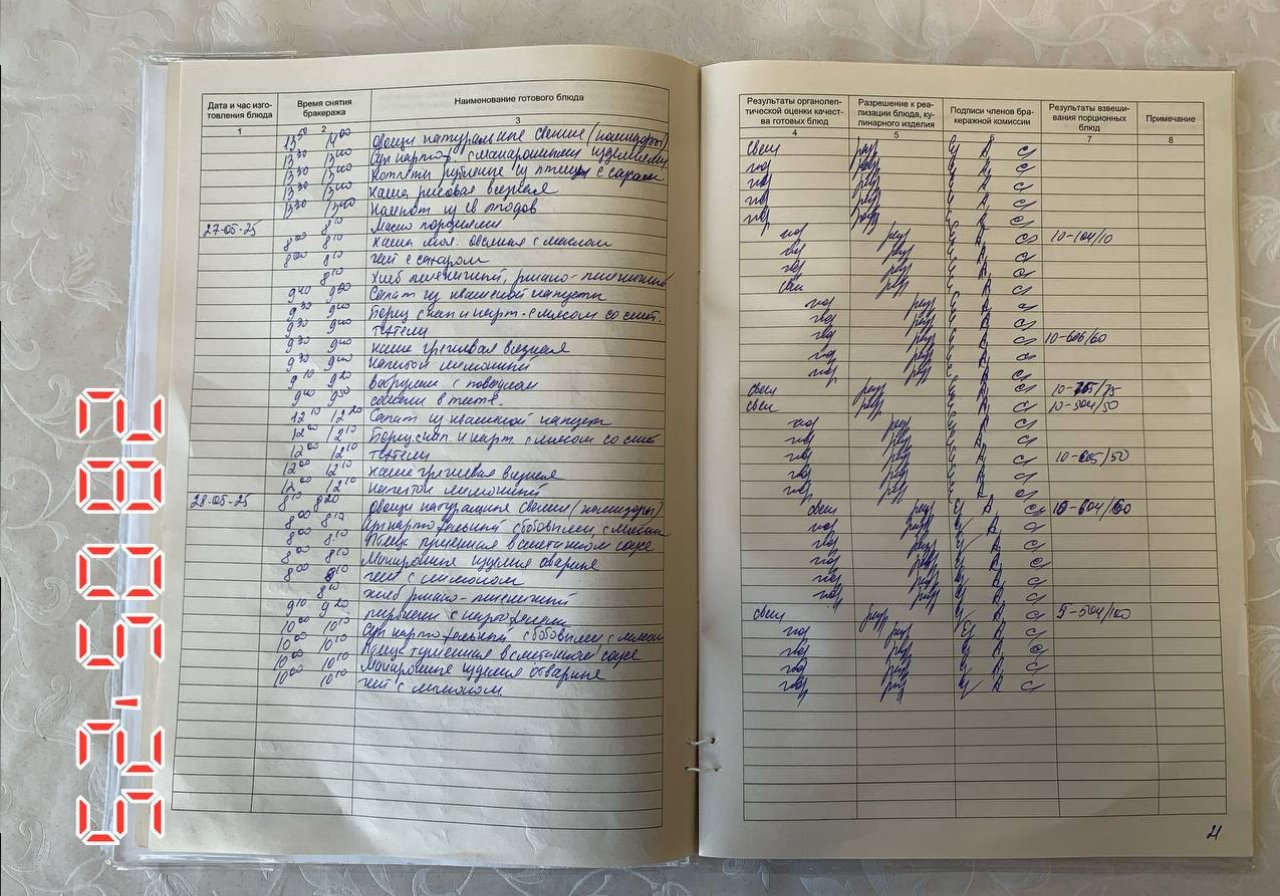 Дата и час изго-
товления блюда
Время снятия
бракеража
Наименование готового блюда
1 2 3
13 50 14 00 Овощи натуральные свежие (помидоры)
13 30 13 40 Суп картоф с макаронными изделиями
13 30 13 40 Котлеты рубленые из птицы с
13 30 13 40 Каша рисовая вязкая
13 30 13 40 Компот из св плодов
27-05-25 8 10 Масло порциями
8 00 8 10 Каша мол. овсяная с маслом
8 00 8 10 чай с сахаром
8 10 хлеб пшеничный, ржано-пшеничный
9 40 9 50 Салат из квашеной капусты
9 30 9 40 Борщ с кап и карт. с мясом со смет.
9 30 9 40 тефтели
9 30 9 40 каша гречневая вязкая
9 30 9 40 напиток лимонный
9 10 9 20 с повидлом
9 40 9 50 сосиски в тесте
12 10 12 20 Салат из квашеной капуст
12 00 12 10 Борщ с кап. и карт с мясом со смет
12 00 12 10 тефтели
12 00 12 10 каша гречневая вязкая
12 00 12 10 напиток лимонный
28-05-25 8 10 8 20 Овощи натуральные свежие (помидоры)
8 00 8 10 Суп картофельный с бобовыми, с мясом
8 00 8 10 Птица тушенная в сметанном соусе
8 00 8 10 Макаронные изделия отварные
8 00 8 10 чай с лимоном
8 10 хлеб ржано-пшеничный
9 10 9 20 с картофелем
10 00 10 10 Суп картофельный с бобовыми с мясом
10 00 10 10 Птица тушенная в сметанном соусе
10 00 10 10 Макаронные изделия отварные
10 00 10 10 чай с лимоном
Результаты органолеп-
тической оценки качест-
ва готовых блюд
Разрешение к реа-
лизации блюда, ку-
линарного изделия
Подписи членов бра-
керажной комиссии
Результаты взвеши-
вания порционных
блюд
Примечание
4 5 6 7 8
свеж разр
гот разр
гот разр
гот разр
гот разр
гот разр 10-104/10
гот разр
гот разр
свеж разр
гот разр
гот разр
гот разр 10-606/60
гот разр
гот разр
свеж разр 10-755/75
свеж разр 10-504/50
гот разр
гот разр
гот разр 10-605/50
гот разр
гот разр
свеж разр 10-604/60
гот разр
гот разр
гот разр
гот разр
гот разр
свеж разр 5-504/100
гот разр
гот разр
гот разр
гот разр
21